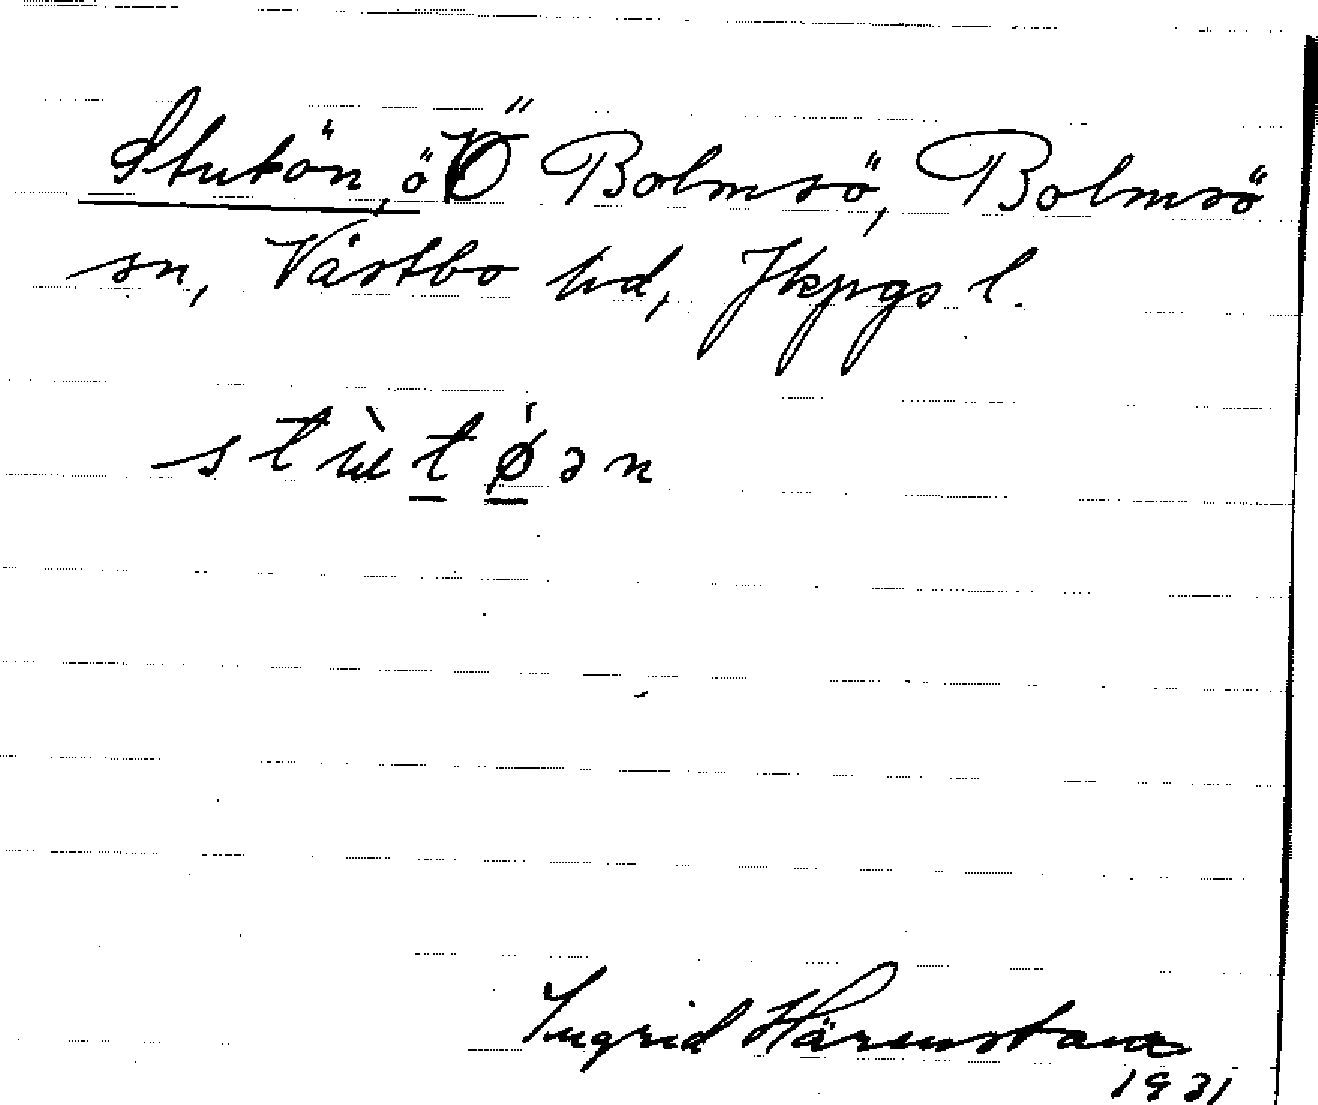 Stutön, ö Ö Bolmsö, Bolmsö
sn, Västbo hd, Jkpgs l.
stùtǿən
Ingrid Härenstam
1931